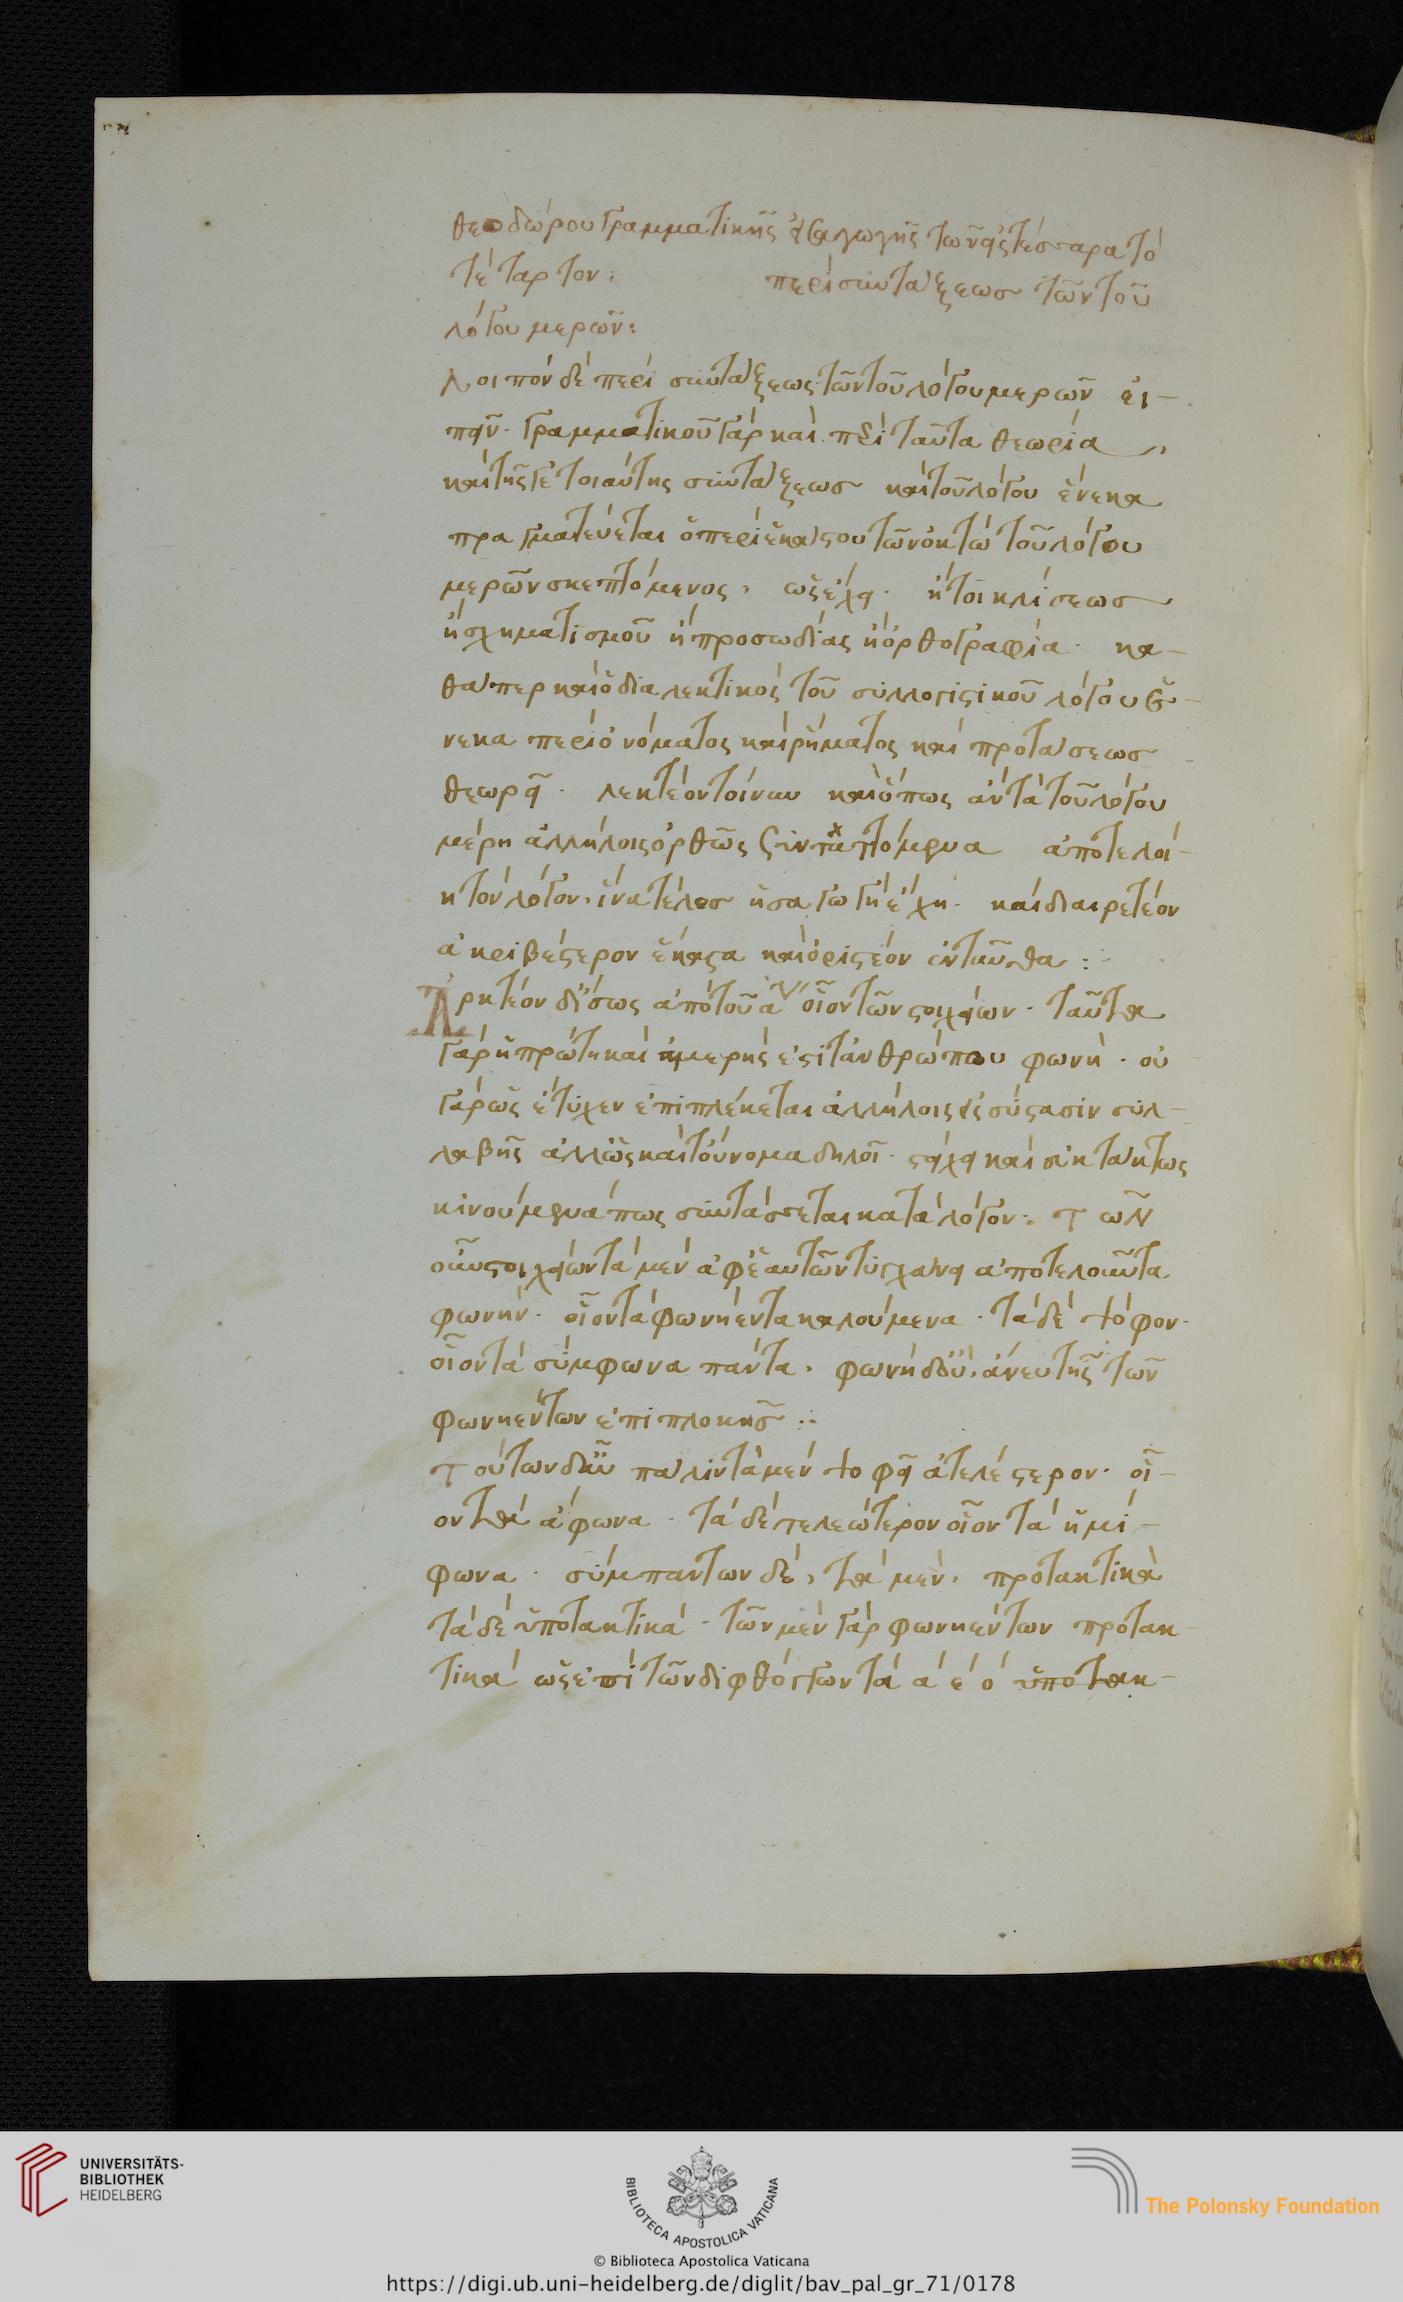 θεοδώρου γραμματικῆς εἰσαγωγῆς τῶν εἰς τέσσαρα τὸ
τέταρτον: περὶ συντάξεως τῶν τοῦ
λόγου μερῶν:
Λοιπὸν δὲ περὶ συντάξεως τῶν τοῦ λόγου μερῶν εἰ-
πεῖν. γραμματικοῦ γὰρ καὶ περὶ ταῦτα θεωρία,
καὶ τῆς γε τοιαύτης συντάξεως καὶ τοῦ λόγου ἕνεκα
πραγματεύεται ὁ περὶ ἑκάστου τῶν ὀκτὼ τοῦ λόγου
μερῶν σκεπτόμενος, ὡς ἔχει. ἤτοι κλίσεως
ἢ σχηματισμοῦ ἢ προσωδίας ἢ ὀρθογραφία. κα-
θάπερ καὶ ὁ διαλεκτικὸς τοῦ συλλογιστικοῦ λόγου ἕ-
νεκα περὶ ὀνόματος καὶ ῥήματος καὶ προτάσεως
θεωρεῖ. λεκτέον τοίνυν καὶ ὅπως ἂν τὰ τοῦ λόγου
μέρη ἀλλήλοις ὀρθῶς συνταττόμενα ἀποτελοί-
η τὸν λόγον. ἵνα τέλος ἡ εἰσαγωγὴ ἔχη. καὶ διαιρετέον
ἀκριβέστερον ἕκαστα καὶ ὁριστέον ἐνταῦθα:
Ἀρκτέον δ' ἴσως ἀπὸ τοῦ α οἷον τῶν στοιχείων. ταῦτα
γὰρ ἡ πρώτη καὶ ἀμερής ἐστι τἀνθρώπου φωνή. οὐ
γὰρ ὡς ἔτυχεν ἐπιπλέκεται ἀλλήλοις εἰς σύστασιν συλ-
λαβῆς ἀλλ' ὡς καὶ τοὔνομα δηλοῖ. στείχει καὶ εὐτάκτως
κινούμενά πως συντάσσεται κατὰ λόγον: τῶν
οὖν στοιχείων τὰ μὲν ἀφ' ἑαυτῶν τυγχάνει ἀποτελοῦντα
φωνήν. οἷον τὰ φωνήεντα καλούμενα. τὰ δὲ ψόφον.
οἷον τὰ σύμφωνα πάντα. φωνὴ δ' οὔ. ἄνευ τῆς τῶν
φωνηέντων ἐπιπλοκῆς:
τούτων δ' αὖ πάλιν τὰ μὲν ψοφεῖ ἀτελέστερον. οἷ-
ον τὰ ἄφωνα. τὰ δὲ τελεώτερον οἷον τὰ ἡμί-
φωνα. συμπάντων δέ, τὰ μέν, προτακτικὰ
τὰ δὲ ὑποτακτικά. τῶν μὲν γὰρ φωνηέντων προτακ-
τικὰ ὡς ἐπὶ τῶν διφθόγγων τὰ α ε ο ὑποτακ-
UNIVERSITÄTS-
BIBLIOTHEK
HEIDELBERG
BIBLIOTECA APOSTOLICA VATICANA
The Polonsky Foundation
© Biblioteca Apostolica Vaticana
https://digi.ub.uni-heidelberg.de/diglit/bav_pal_gr_71/0178